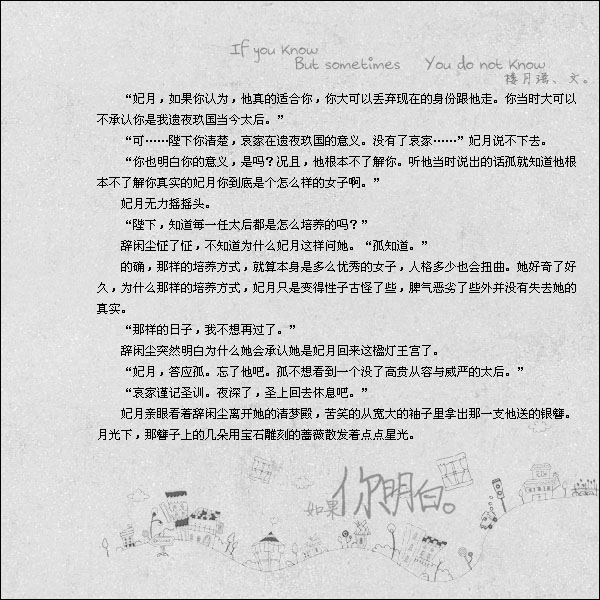 If you know
But sometimes You do not know
楼月瑶、文。
“妃月，如果你认为，他真的适合你，你大可以丢弃现在的身份跟他走。你当时大可以
不承认你是我遗夜玖国当今太后。”
“可……陛下你清楚，哀家在遗夜玖国的意义。没有了哀家……”妃月说不下去。
“你也明白你的意义，是吗？况且，他根本不了解你。听他当时说出的话孤就知道他根
本不了解你真实的妃月你到底是个怎么样的女子啊。”
妃月无力摇摇头。
“陛下，知道每一任太后都是怎么培养的吗？”
辞闲尘怔了怔，不知道为什么妃月这样问她。“孤知道。”
的确，那样的培养方式，就算本身是多么优秀的女子，人格多少也会扭曲。她好奇了好
久，为什么那样的培养方式，妃月只是变得性子古怪了些，脾气恶劣了些外并没有失去她的
真实。
“那样的日子，我不想再过了。”
辞闲尘突然明白为什么她会承认她是妃月回来这楹灯王宫了。
“妃月，答应孤。忘了他吧。孤不想看到一个没了高贵从容与威严的太后。”
“哀家谨记圣训。夜深了，圣上回去休息吧。”
妃月亲眼看着辞闲尘离开她的清梦殿，苦笑的从宽大的袖子里拿出那一支他送的银簪。
月光下，那簪子上的几朵用宝石雕刻的蔷薇散发着点点星光。
如果你明白。